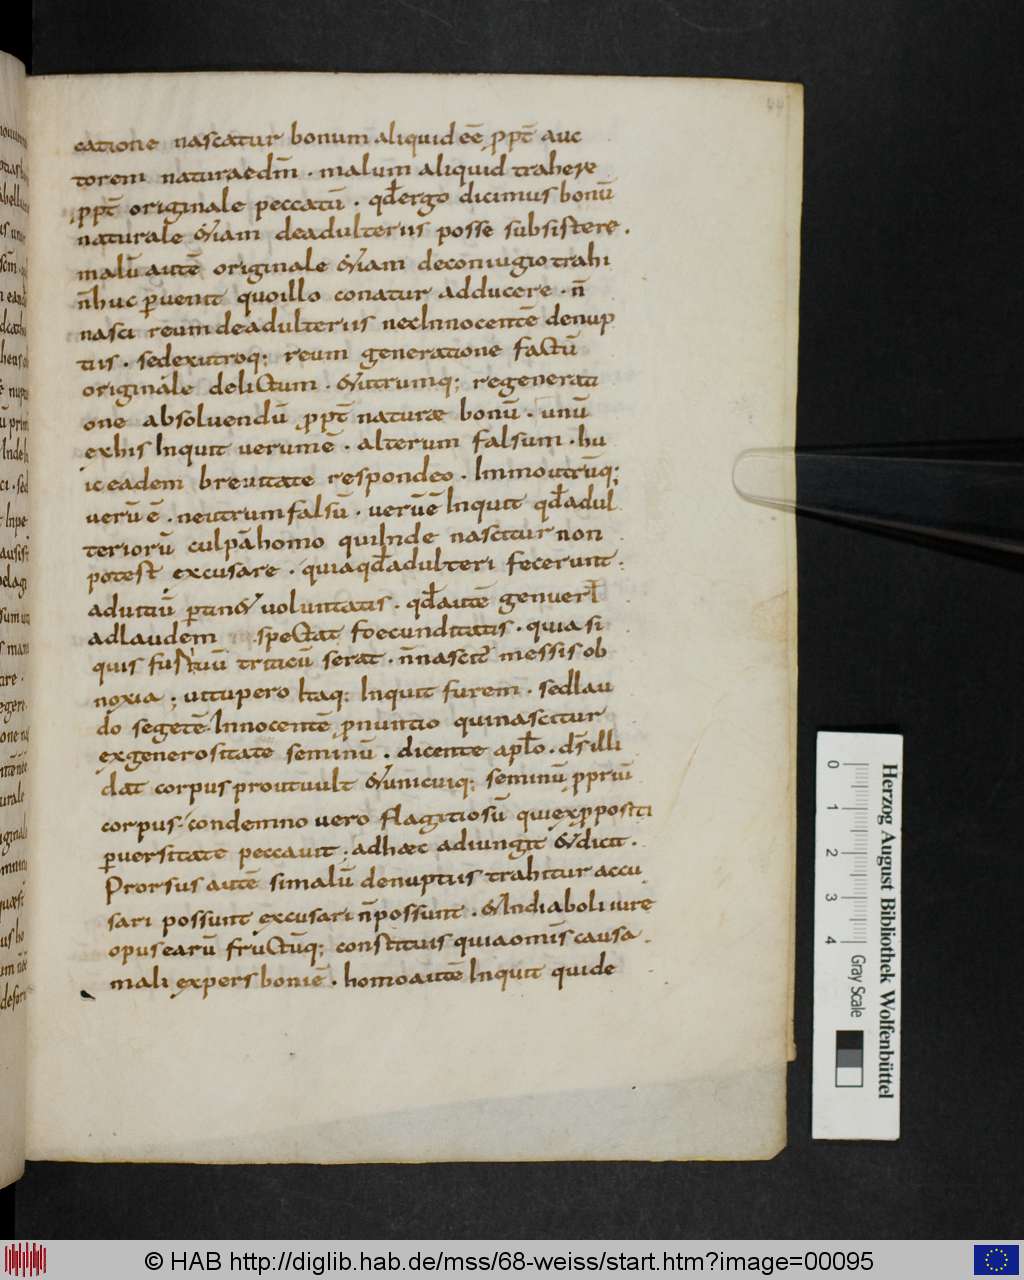 catione nascatur bonum aliquid eē, ꝓpt̄ auc
torem naturae dm̄ · malum aliquid trahere
ꝓpt̄ originale peccatū · qđ ergo dicimus bonū
naturale &iam de adulteriis posse subsistere ·
malū autē originale &iam de coniugio trahi
n̄ huc ꝑuenit quo illo conatur adducere · n̄
nasci reum de adulteriis nec Innocentē de nup
tiis · sed ex utroq; reum generatione factū
originale delictum · & utrumq; regenerati
one absoluendū ꝓpt̄ naturae bonū · unū
ex his Inquit uerum ē · alterum falsum · hu
ic eadem breuitate respondeo · Immo utrūq;
uerū ē · neutrum falsū · uerū ē Inquit qđ adul
teriorū culpā homo qui Inde nascitur non
potest excusare · quia qđ adulteri fecerunt ·
ad uitiū ꝑtin& uoluntatis · qđ autē genuer̄
ad laudem spectat foecunditatis · quia si
quis furtiuū triticū serat · n̄ nascit̄ messis ob
noxia ; uitupero Itaq; Inquit furem · sed lau
do segetē · Innocentē ꝓnuntio qui nascitur
ex generositate seminū · dicente aplo · ds̄ illi
dat corpus prout uult & unicuiq; seminū ꝓpriū
corpus · condemno uero flagitiosū qui ex ꝓpositi
ꝑuersitate peccauit ; ad haec adiungit & dicit ·
Prorsus autē si malū de nuptiis trahitur accu
sari possunt excusari n̄ possunt · & In diaboli iure
opus earū fructūq; constituis quia omīs causa
mali expers boni ē · homo autē Inquit qui de
0
1
2
3
4
Gray Scale
Herzog August Bibliothek Wolfenbüttel
© HAB http://diglib.hab.de/mss/68-weiss/start.htm?image=00095